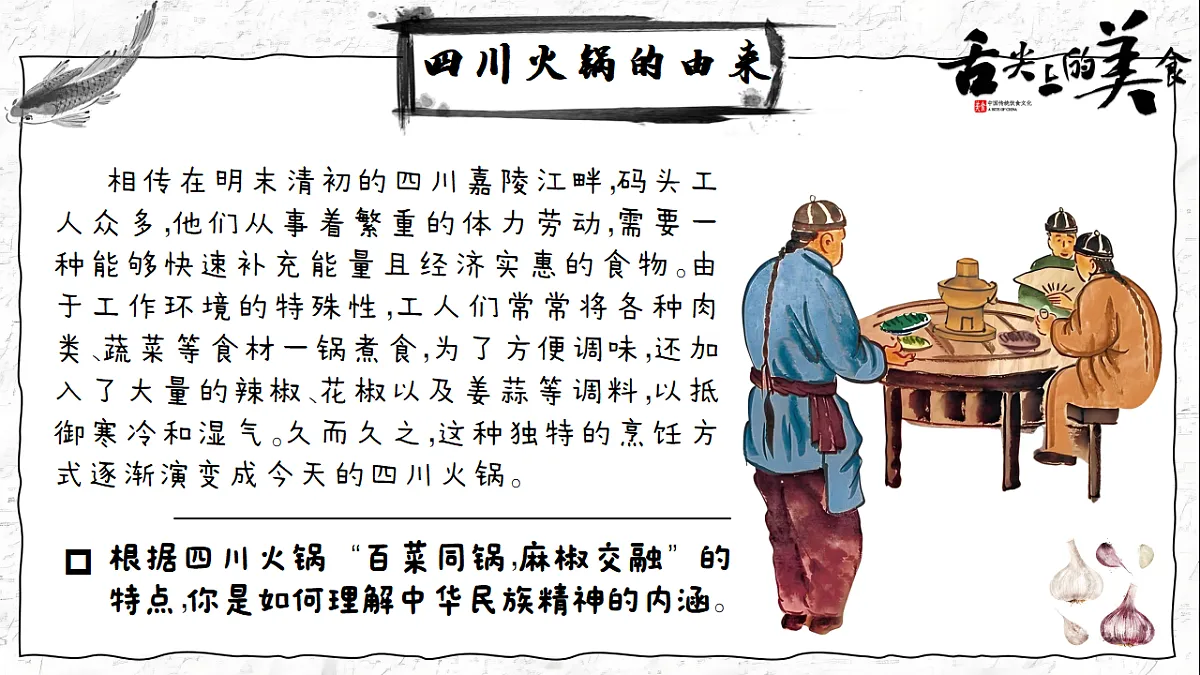 四川火锅的由来
舌尖上的美食
美食
中国传统饮食文化
A BITE OF CHINA
相传在明末清初的四川嘉陵江畔,码头工
人众多,他们从事着繁重的体力劳动,需要一
种能够快速补充能量且经济实惠的食物。由
于工作环境的特殊性,工人们常常将各种肉
类、蔬菜等食材一锅煮食,为了方便调味,还加
入了大量的辣椒、花椒以及姜蒜等调料,以抵
御寒冷和湿气。久而久之,这种独特的烹饪方
式逐渐演变成今天的四川火锅。
根据四川火锅“百菜同锅,麻椒交融”的
特点,你是如何理解中华民族精神的内涵。